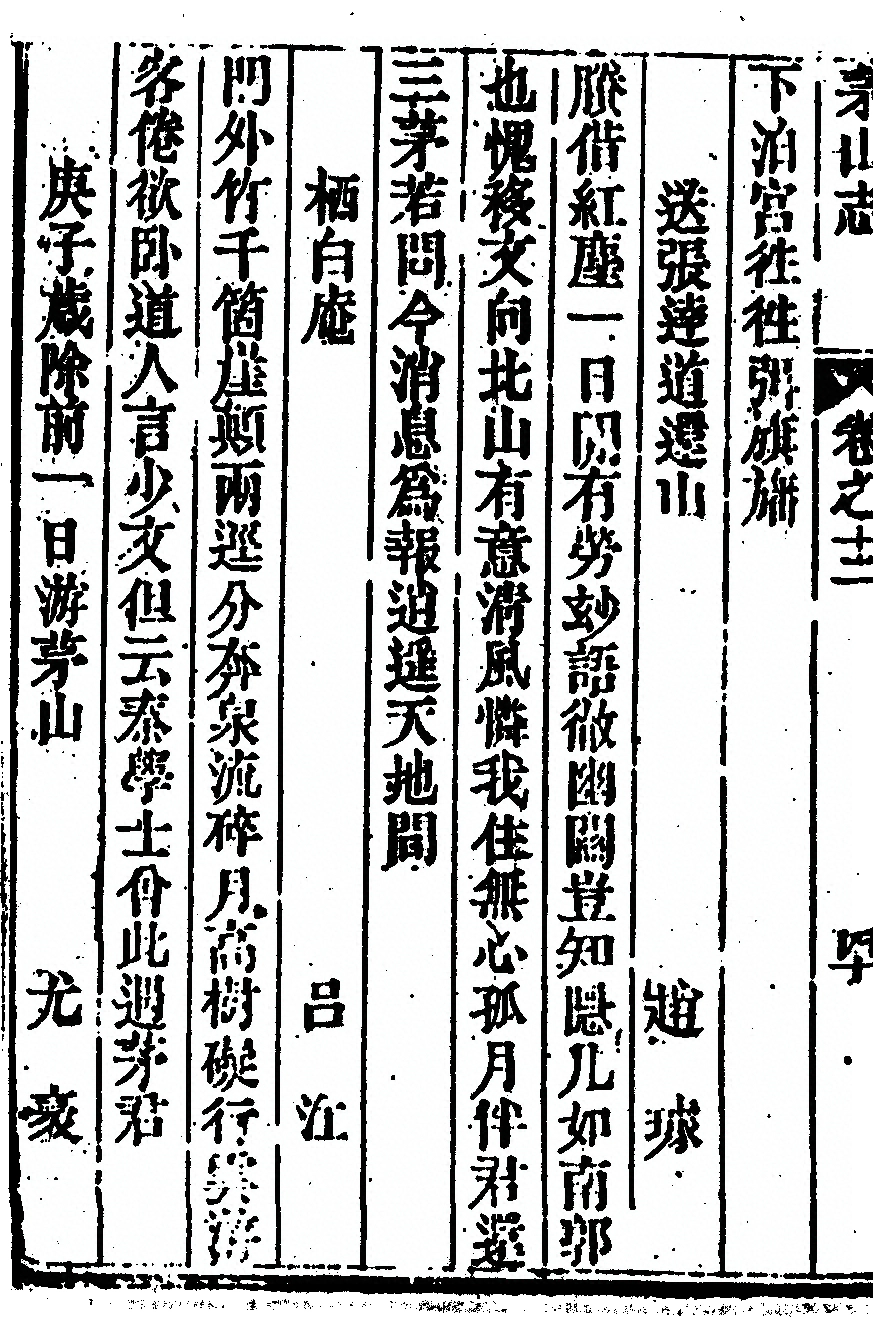 茅山志 卷之十二
下泊宮徃徃張旗旆
送張達道還山 趙 球
勝借紅塵一日閒有勞妙語徹幽關豈知隱几如南郭
也愧移文向北山有意清風憐我住無心孤月伴君還
三茅若問今消息爲報逍遥天地間
栖白庵 吕 江
門外竹千箇崖顛兩逕分奔泉流碎月高樹礙行雲游
客倦欲卧道人言少文但云秦學士曾此過茅君
庚子歲除前一日游茅山 尤 袤